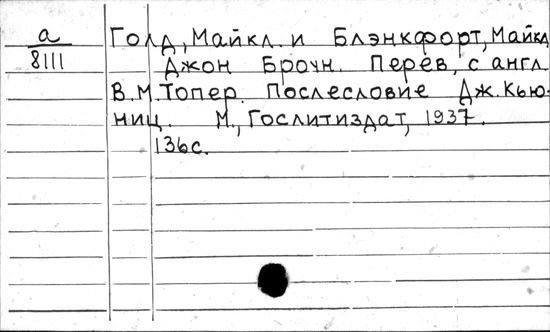 а
8111
Голд, Майкл. и Блэнкфорт, Майкл
Джон Броун. Перев, с англ.
В.М.Топер. Послесловие Дж.Кью-
ниц. М., Гослитиздат, 1937.
136с.